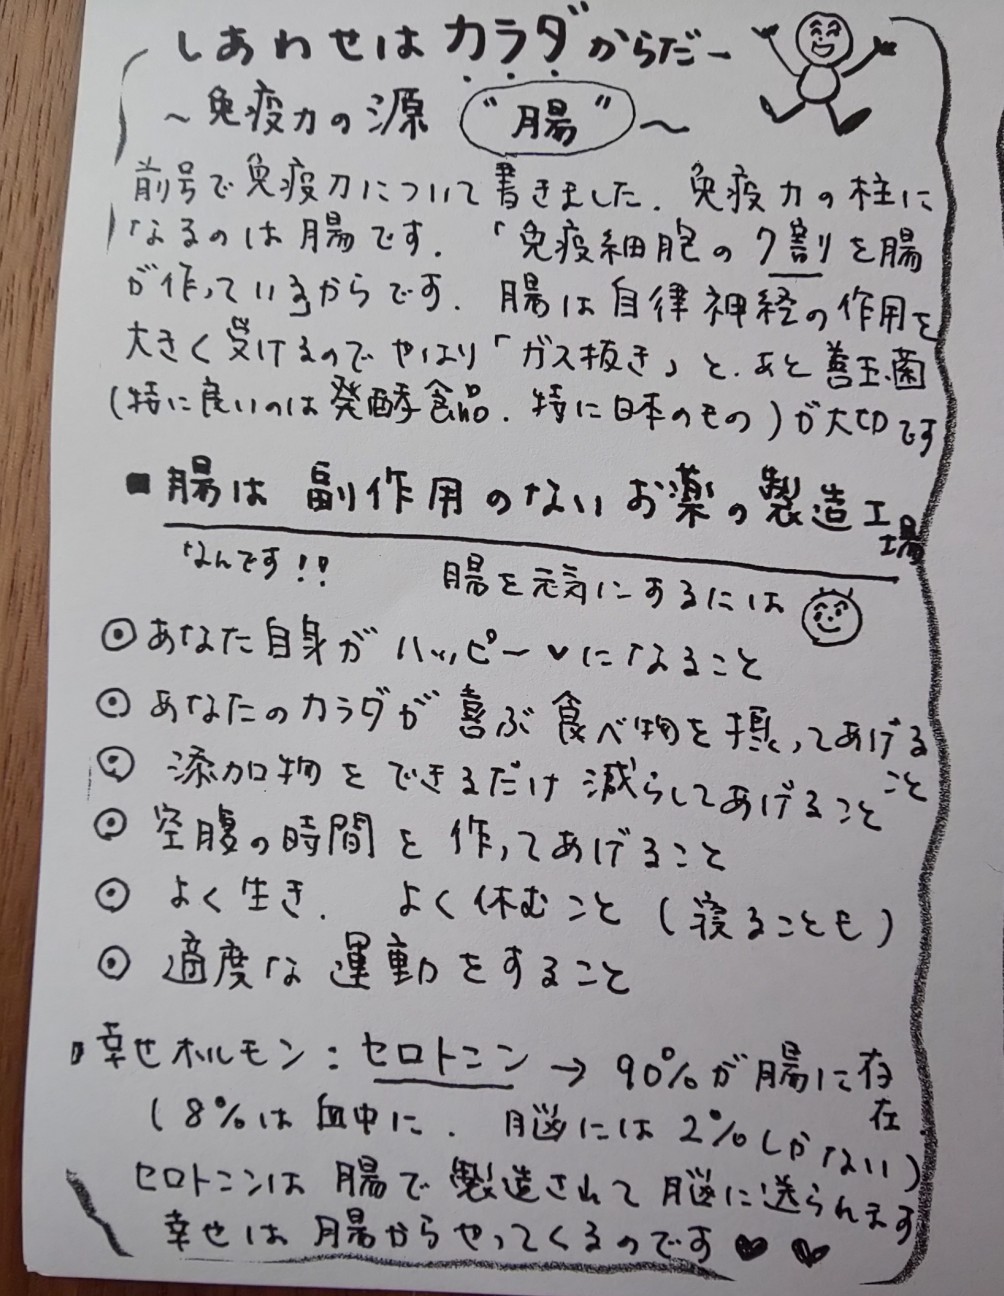 しあわせはカラダからだー
～免疫力の源 “腸”～
前号で免疫力について書きました. 免疫力の柱に
なるのは腸です. 「免疫細胞の7割を腸
が作っているからです. 腸は自律神経の作用を
大きく受けるのでやはり「ガス抜き」と. あと善玉菌
(特に良いのは発酵食品. 特に日本のもの)が大切です
■腸は副作用のないお薬の製造工場
なんです!! 腸を元気にするには
◎あなた自身がハッピー♥になること
◎あなたのカラダが喜ぶ食べ物を摂ってあげること
◎添加物をできるだけ減らしてあげること
◎空腹の時間を作ってあげること
◎よく生き. よく休むこと(寝ることも)
◎適度な運動をすること
■幸せホルモン:セロトニン→90%が腸に存在
(8%は血中に. 脳には2%しかない)
セロトニンは腸で製造されて脳に送られます
幸せは腸からやってくるのです♥♥